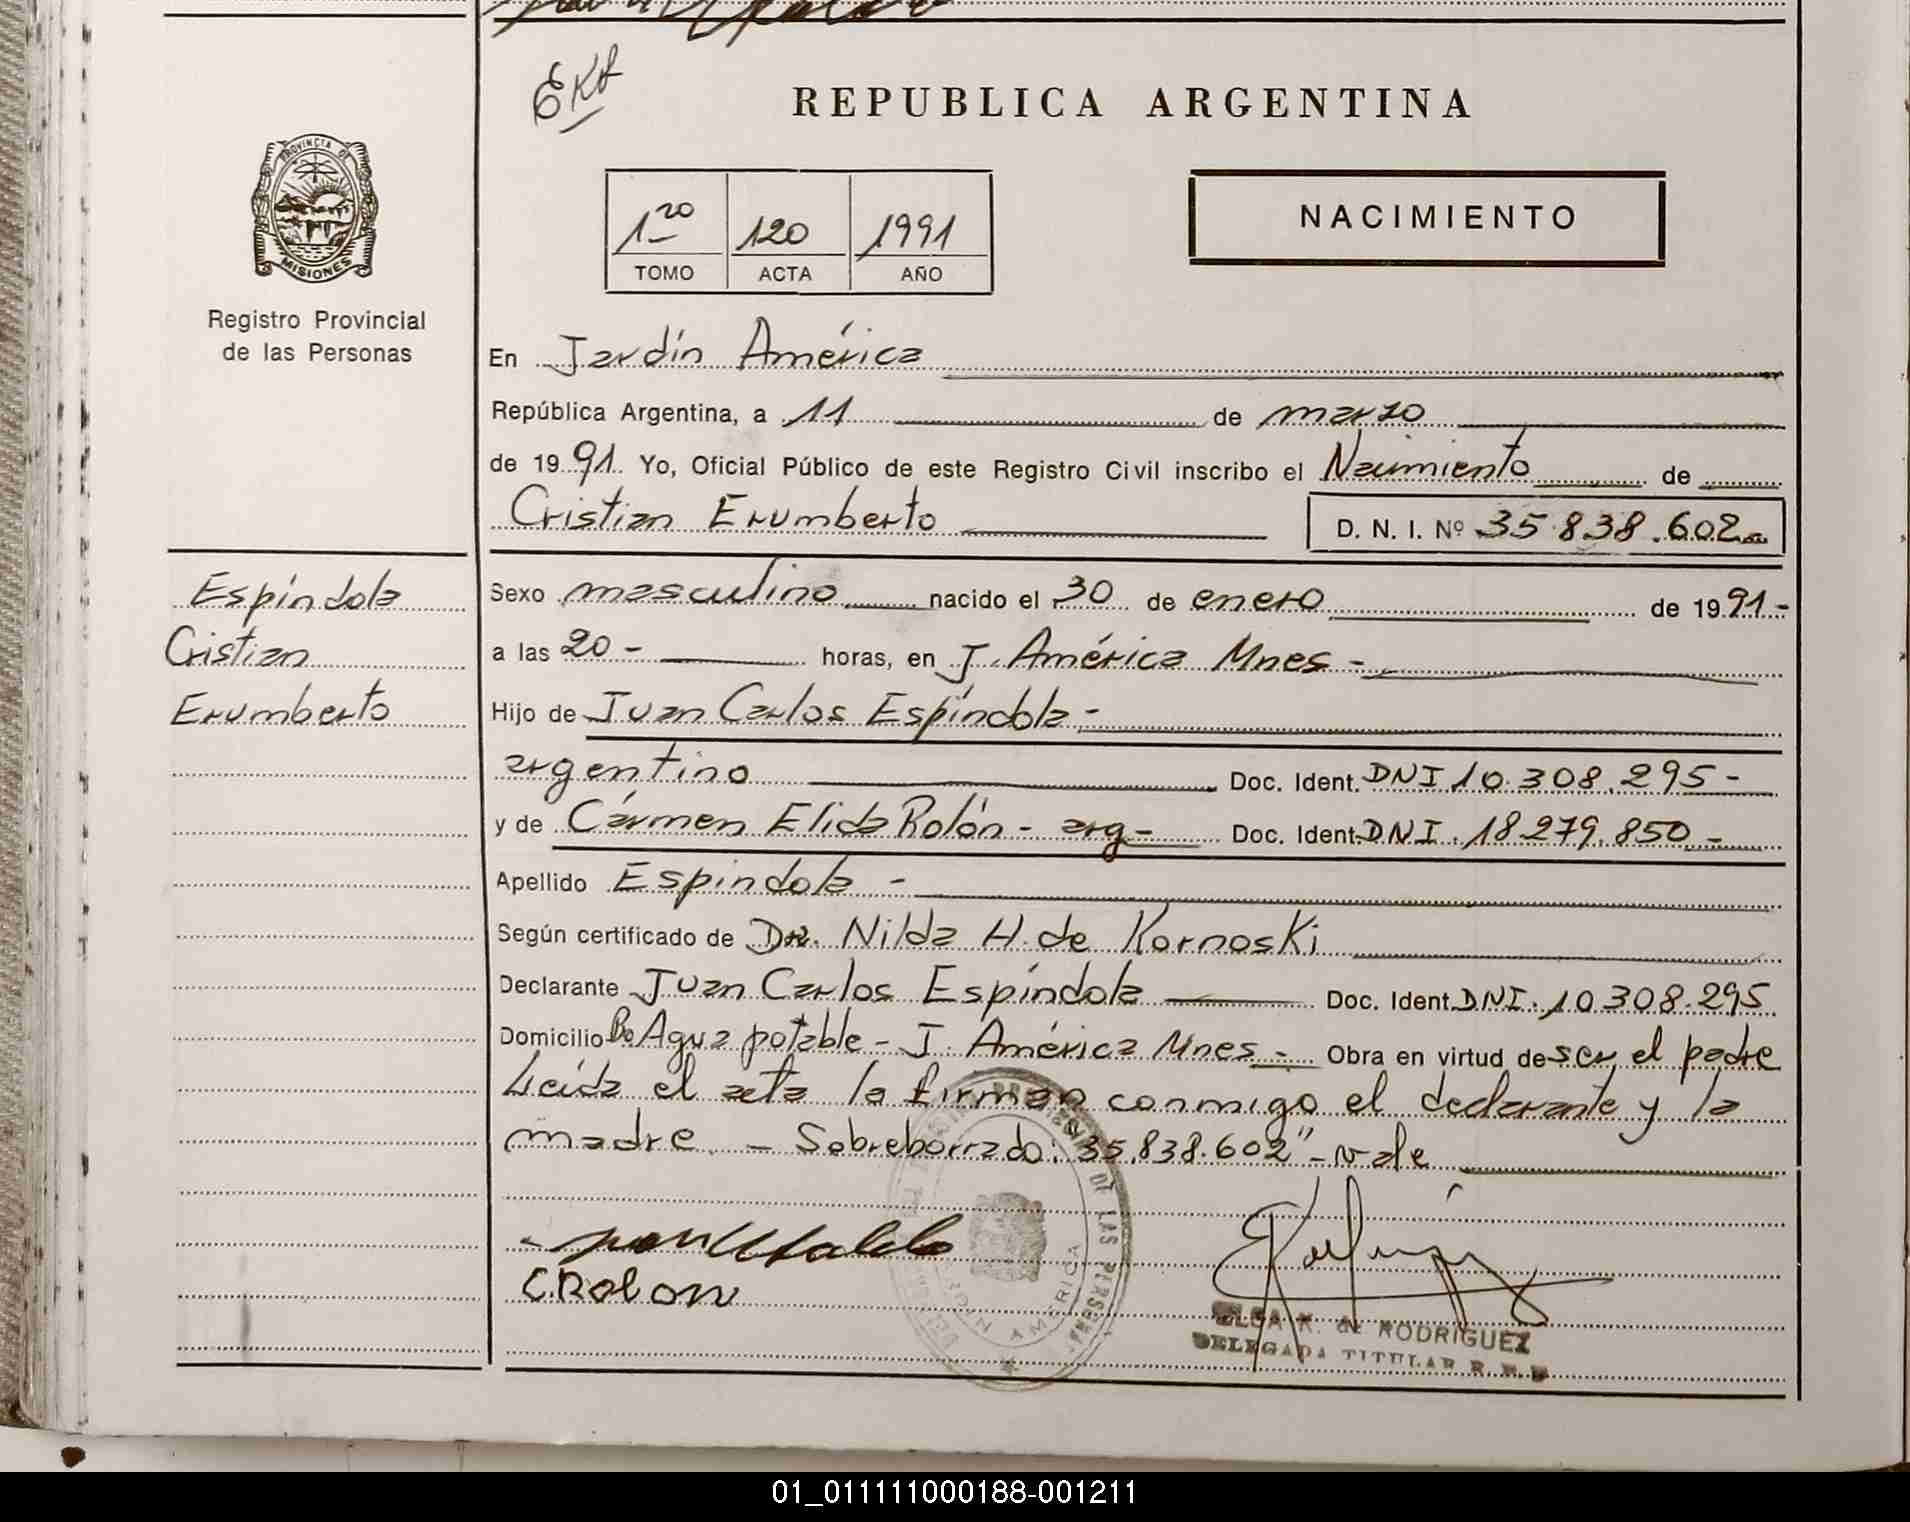 REPUBLICA ARGENTINA
PROVINCIA DE
MISIONES
Registro Provincial
de las Personas
1ro 120 1991
TOMO ACTA AÑO
NACIMIENTO
En Jardín América
República Argentina, a 11 de marzo
de 1991 Yo, Oficial Público de este Registro Civil inscribo el Nacimiento de
Cristian Erumberto D. N. I. Nº 35.838.602
Espíndola
Cristian
Erumberto
Sexo masculino nacido el 30 de enero de 1991-
a las 20- horas, en J. América Mnes-
Hijo de Juan Carlos Espíndola-
argentino Doc. Ident. DNI 10.308.295-
y de Cármen Elida Rolón- arg- Doc. Ident. DNI. 18.279.850-
Apellido Espindola -
Según certificado de Dra. Nilda H. de Kornoski
Declarante Juan Carlos Espíndola Doc. Ident. DNI. 10.308.295
Domicilio Bo Agua potable - J. América Mnes- Obra en virtud de ser el padre
Leída el acta la firman conmigo el declarante y la
madre. - Sobreborrado: "35.838.602" - vale
C.ROLON
OLGA K. de RODRIGUEZ
DELEGADA TITULAR R. P. P
DE LAS PERSONAS
JARDIN AMERICA
01_011111000188-001211